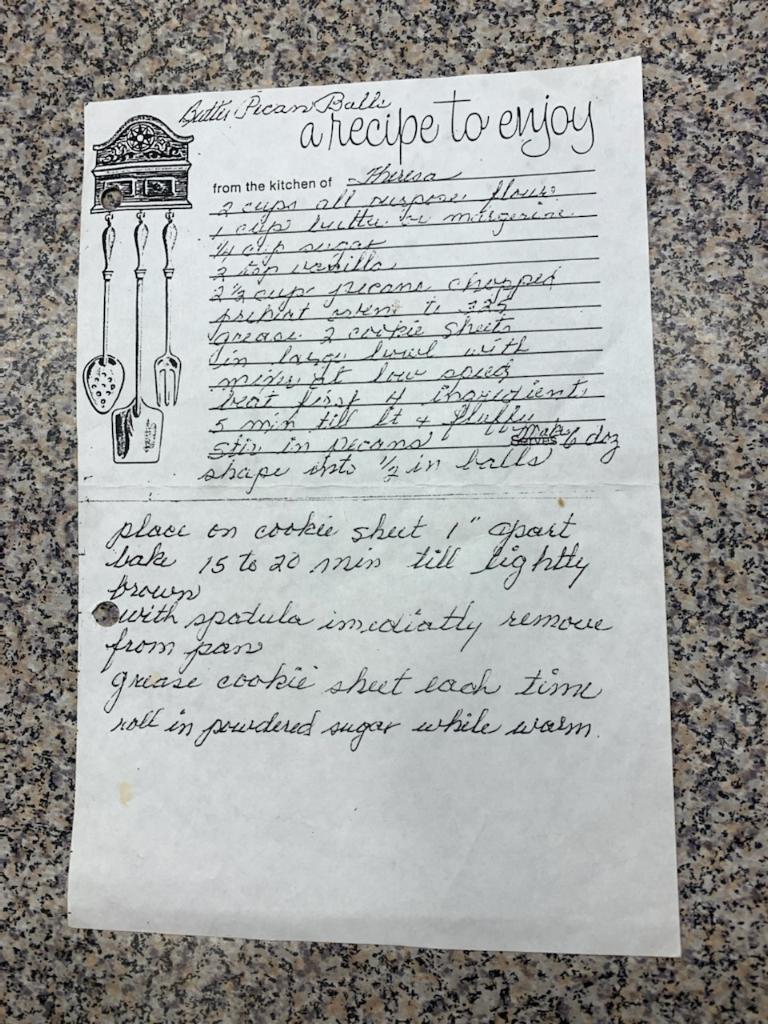 Butter Pecan Balls
a recipe to enjoy
from the kitchen of Theresa
2 cups all purpose flour
1 cup butter or margerine
1/4 cup sugar
2 tsp vanilla
2 1/2 cup pecans chopped
preheat oven to 325
grease 2 cookie sheets
in large bowl with
mixer at low speed
beat first 4 ingredients
5 min till lt & fluffy
stir in pecans Serves Makes 6 doz
shape into 1/2 in balls
place on cookie sheet 1" apart
bake 15 to 20 min till lightly
brown
with spatula imediatly remove
from pan
grease cookie sheet each time
roll in powdered sugar while warm.